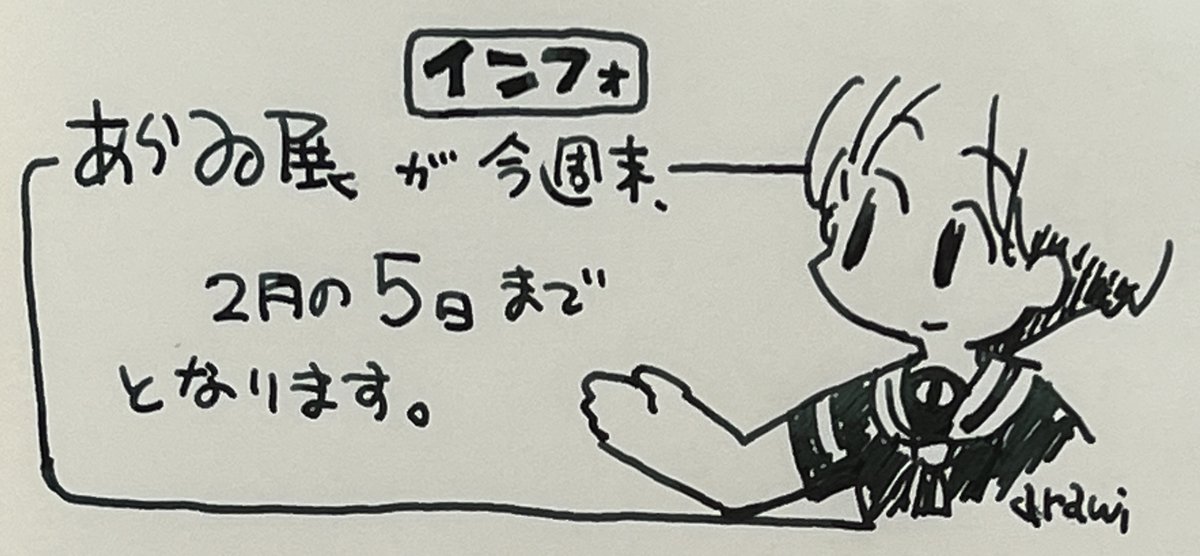 インフォ
あらゐ展が今週末、
2月の5日まで
となります。
arawi